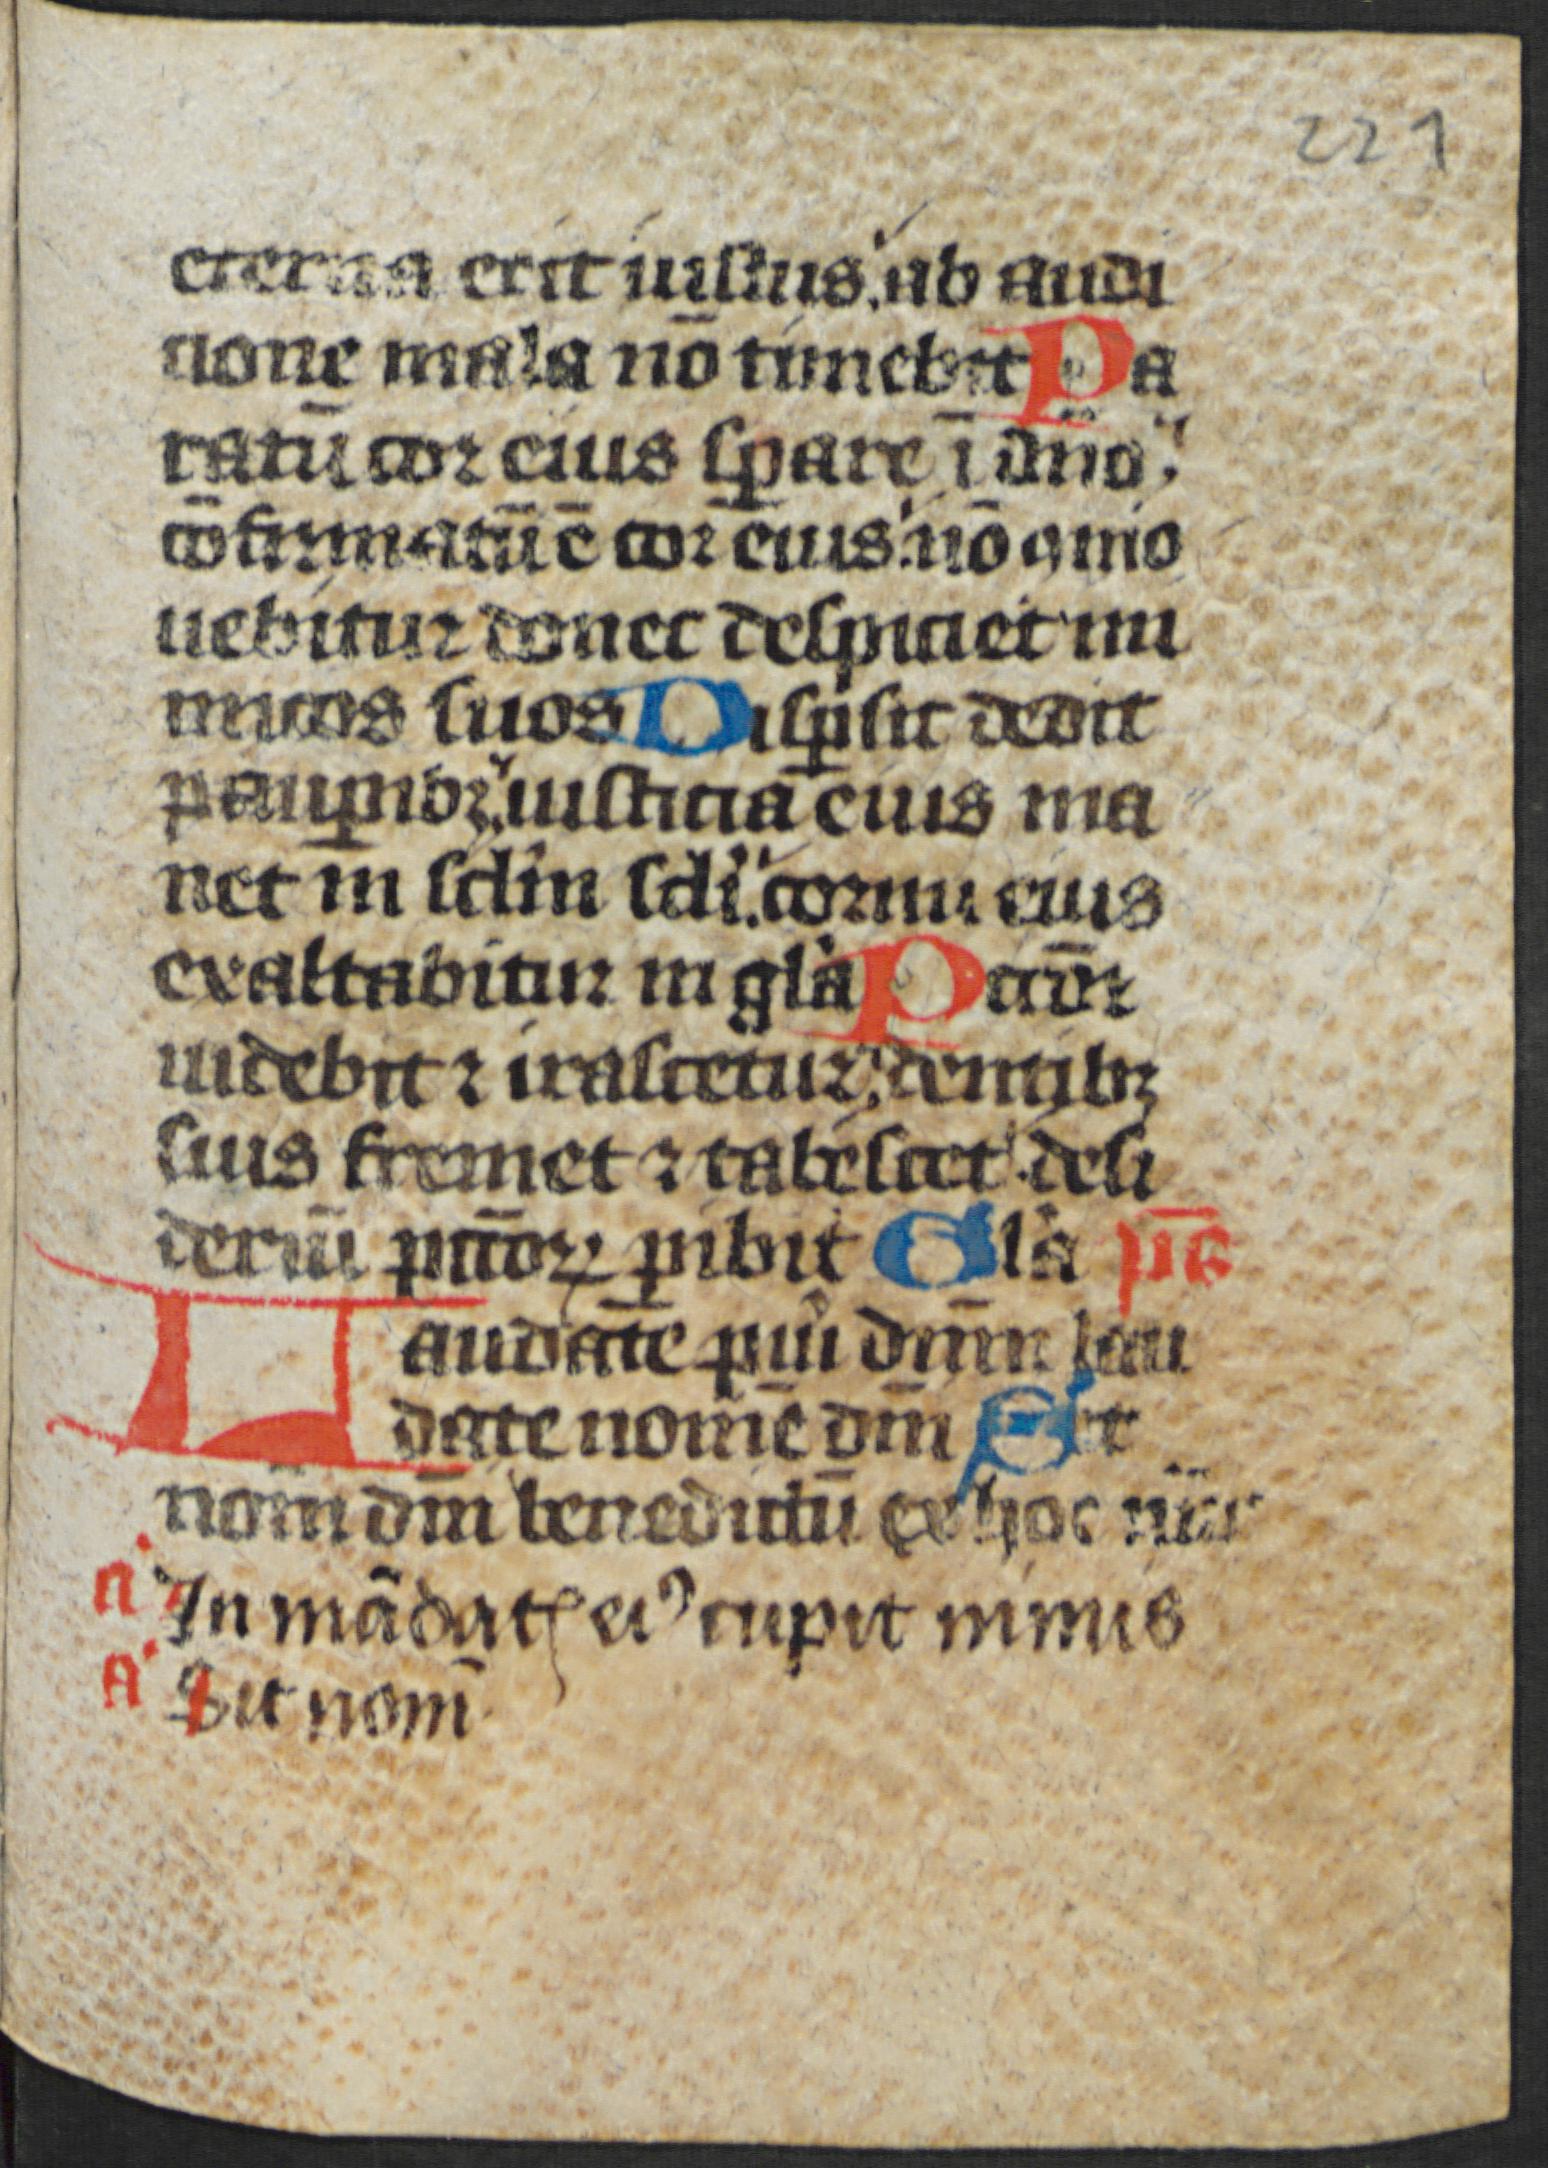 221
eterna erit iustus. ab audi
tione mala nō timebit Pa
ratū cor eius sꝑare ī dño.
cōfirmatū ē cor eius. nō ꝯmo
uebitur donec despiciet ini
micos suos Disꝑsit dedit
pauꝑibꝫ. iusticia eius ma
net in sclm scli. cornu eius
exaltabitur in gła Pctōr
uidebit ⁊ irascetur. dentibꝫ
suis fremet ⁊ tabescet. desi
deriū pctōꝝ ꝑibit Gła ps̄
Laudate pūi dn̄m lau
date nomē dn̄i Sit
nom̄ dn̄i benedictū ex hoc nūc
a' In mādatꝭ eiꝰ cupit nimis
a' Sit nom̄